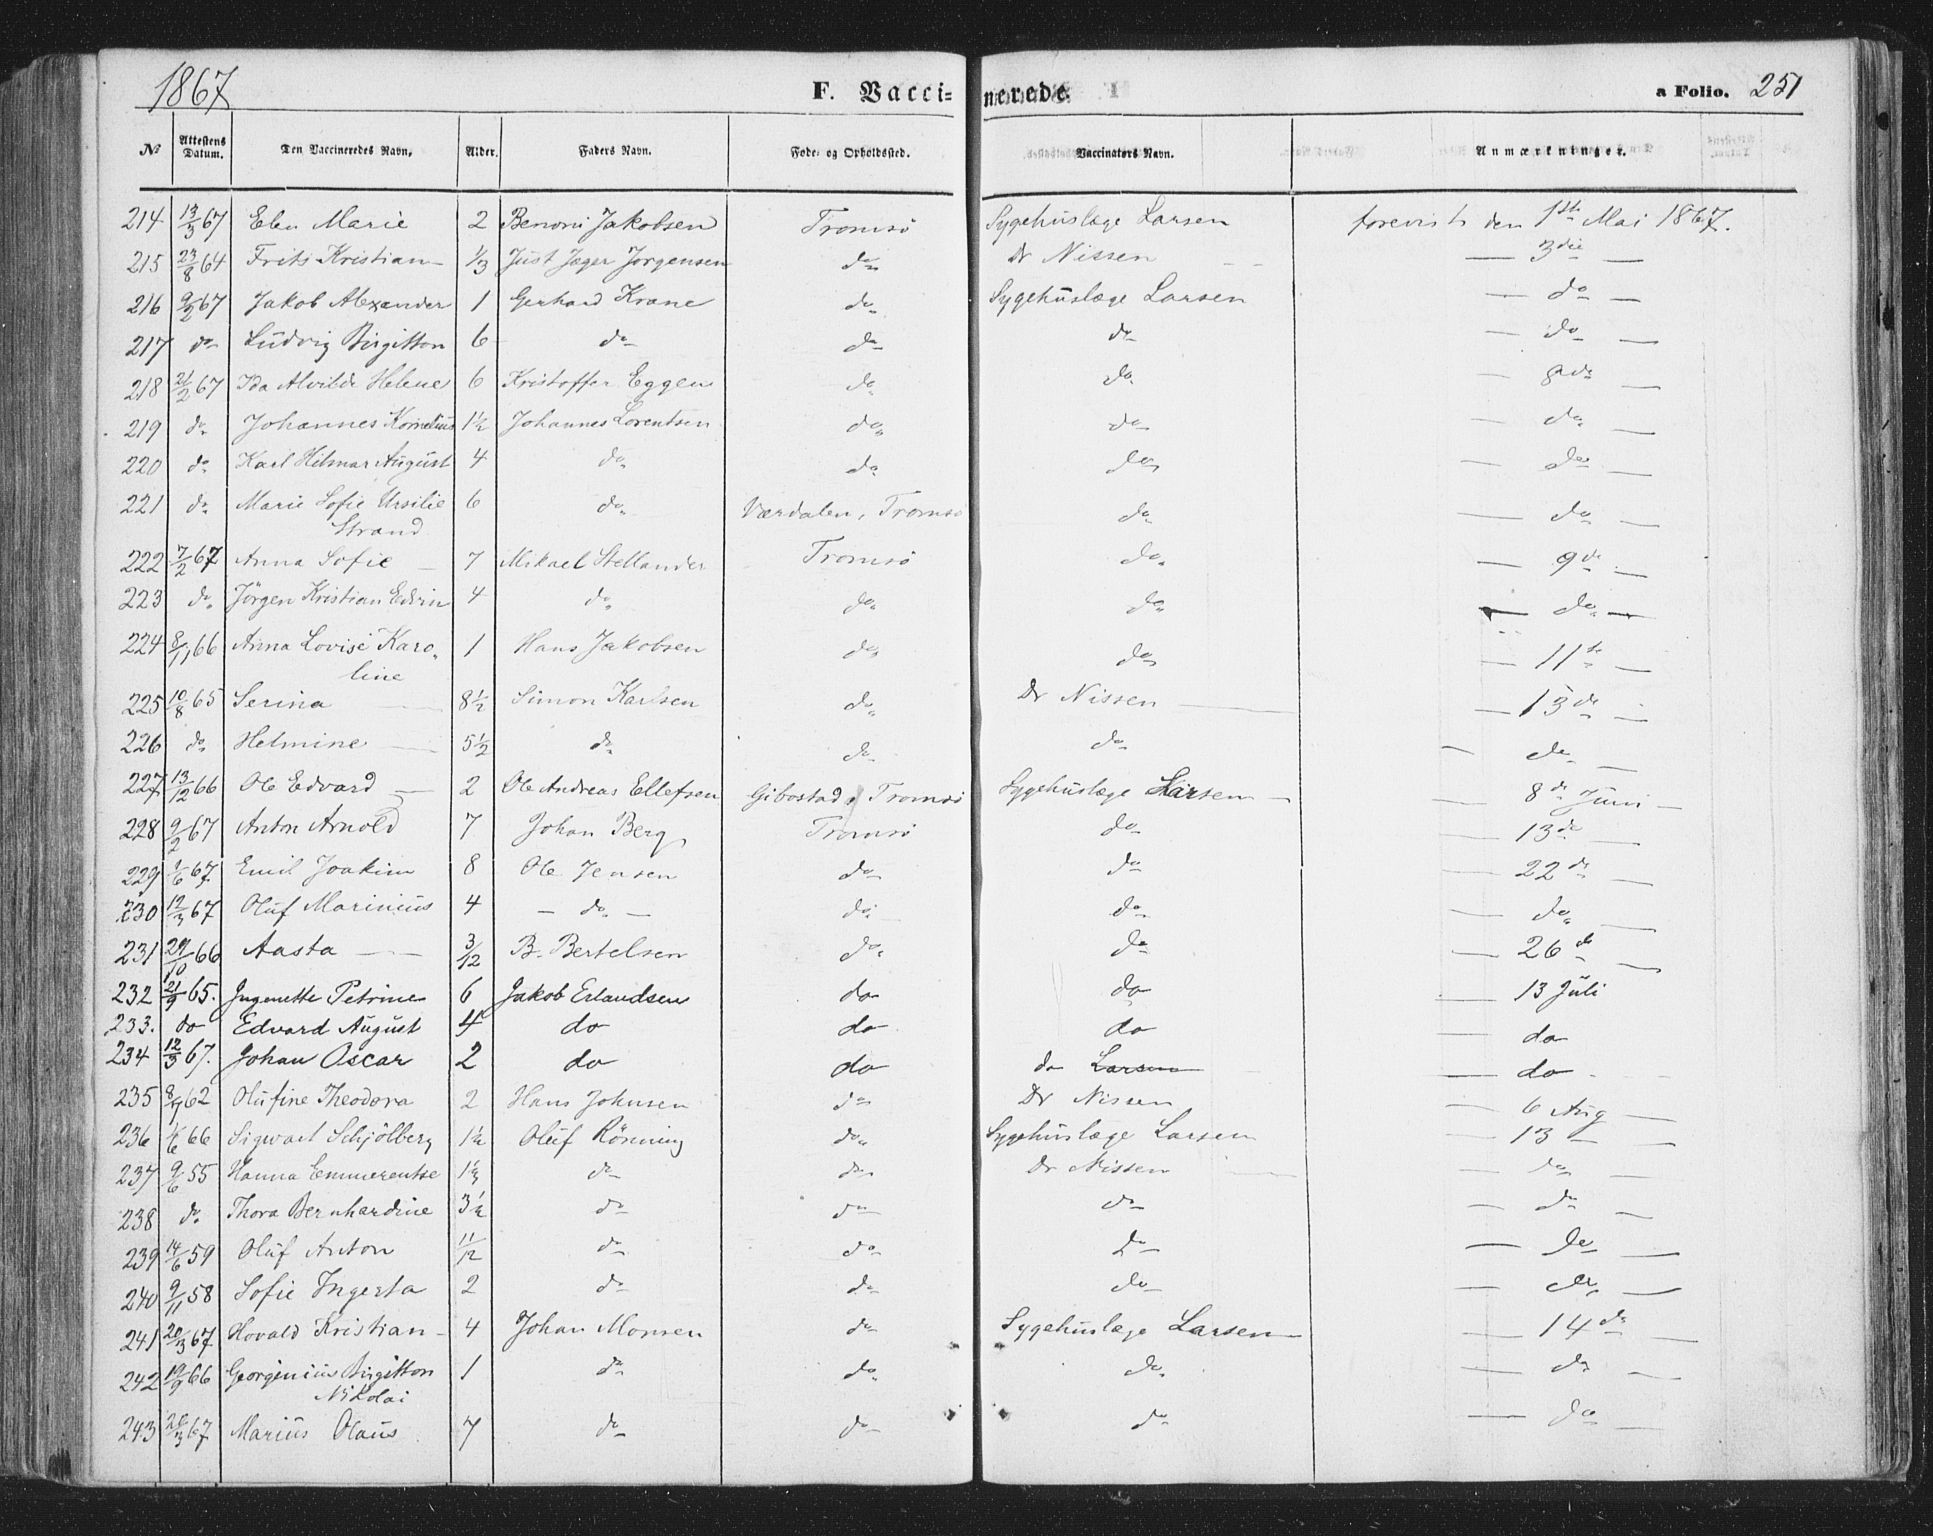 1867 F. Vaccinerede a Folio. 251
№ Attestens Datum. Den Vaccineredes Navn. Alder. Faders Navn. Føde- og Opholdssted. Vaccinators Navn. Anmærkninger.
214 13/3 67 Marie 2 Benoni Jakobsen Tromsö Sygehuslæge Larsen forevist den 1ste Mai 1867.
215 23/8 64 Frits Kristian 1/3 Just Jæger Jørgensen do Dr Nissen — 3die —
216 9/2 67 Jakob Alexander 1 Gerhard Krane do Sygehuslæge Larsen — do —
217 do Ludvig Birgitton 6 do do do — do —
218 21/2 67 Ida Alvilde Helene 6 Kristoffer Eggen do do — 8de —
219 do Johannes Kornelius 1½ Johannes Lorentsen do do — do —
220 do Karl Hilmar August 4 do do do — do —
221 do Marie Sofie Ursilie 6 do Værdalen, Tromsö do — do —
Strand
222 7/2 67 Anna Sofie 7 Mikael Stellander Tromsö do — 9de —
223 do Jörgen Kristian Edvin 4 do do do — do —
224 8/11 66 Anna Lovise Karo- 1 Hans Jakobsen do do — 11te —
line
225 10/8 65 Serina 8½ Simon Karlsen do Dr Nissen — 13de —
226 do Helmine 5½ do do do — do —
227 13/12 66 Ole Edvard 2 Ole Andreas Ellefsen Gibostad, Tromsö Sygehuslæge Larsen — 8de Juni —
228 9/2 67 Anton Arnold 7 Johan Berg Tromsö do — 13de —
229 1/6 67 Emil Joakim 8 Ole Jensen do do — 22de —
230 12/3 67 Oluf Marinius 4 — do — do do — do —
231 29/10 66 Aasta 3/12 B. Bertelsen do do — 26de —
232 21/9 65. Ingenette Petrine 6 Jakob Erlandsen do do — 13 Juli
233. do Edvard August 4 do do do — do
234 12/3 67. Johan Oscar 2 do do do Larsen — do
235 8/11 62 Olufine Theodora 2 Hans Johnsen do Dr Nissen — 6 Aug —
236 1/6 66 Sigwart Schjölberg 1½ Oluf Rönning do Sygehuslæge Larsen — 13 —
237 9/6 55 Hanna Emmerentse 1⅓ do do Dr Nissen — do —
238 do Thora Bernhardine 3½ do do do — do —
239 14/6 59 Oluf Anton 11/12 do do do — do —
240 9/11 58 Sofie Ingerta 2 do do do — do —
241 20/3 67 Hovald Kristian 4 Johan Monsen do Sygehuslæge Larsen — 14de —
242 19/9 66 Georginius Birgitton 1 do do do — do —
Nikolai
243 20/3 67 Marius Olaus 7 do do do — do —